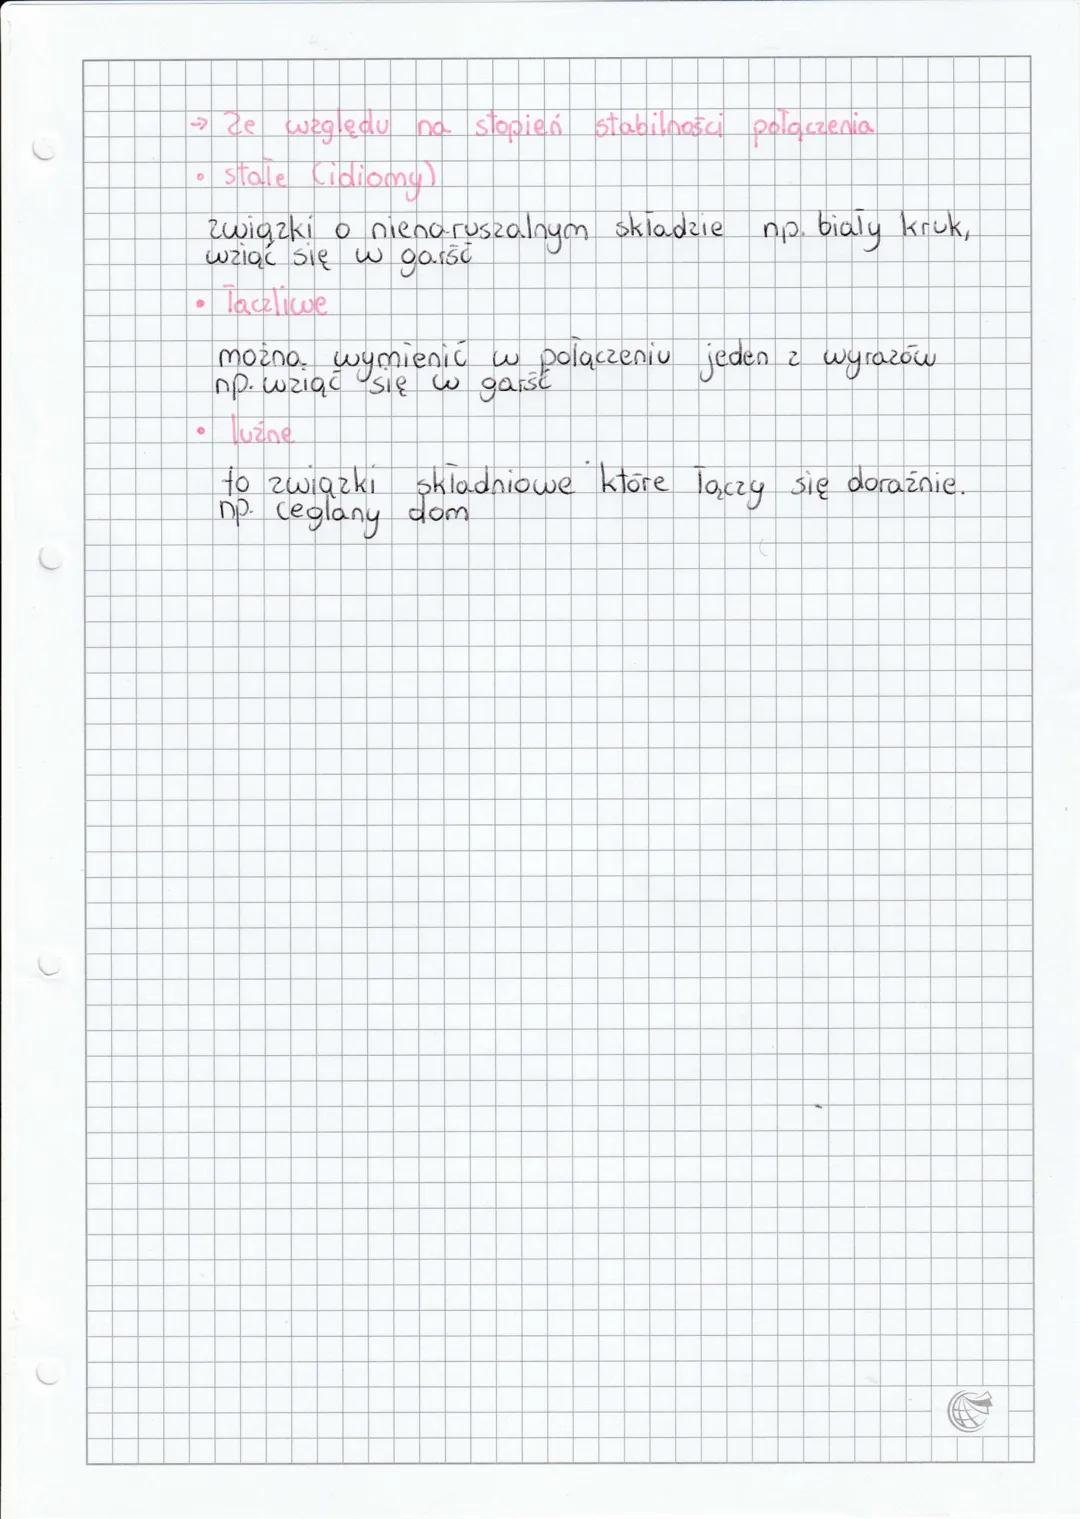 → Ze względu na stopień stabilności połączenia
• stałe (idiomy)
związki o nienaruszalnym składzie np. biały kruk,
wziąć się w garść
• łączliwe
można wymienić w połączeniu jeden z wyrazów
np. wziąć się w garść
• luźne
to związki składniowe które łączy się doraźnie.
np. ceglany dom